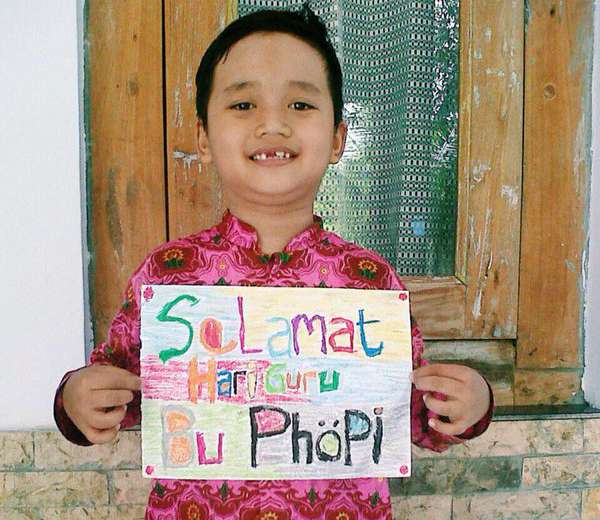 SeLamat
Hari Guru
Bu PhöPi